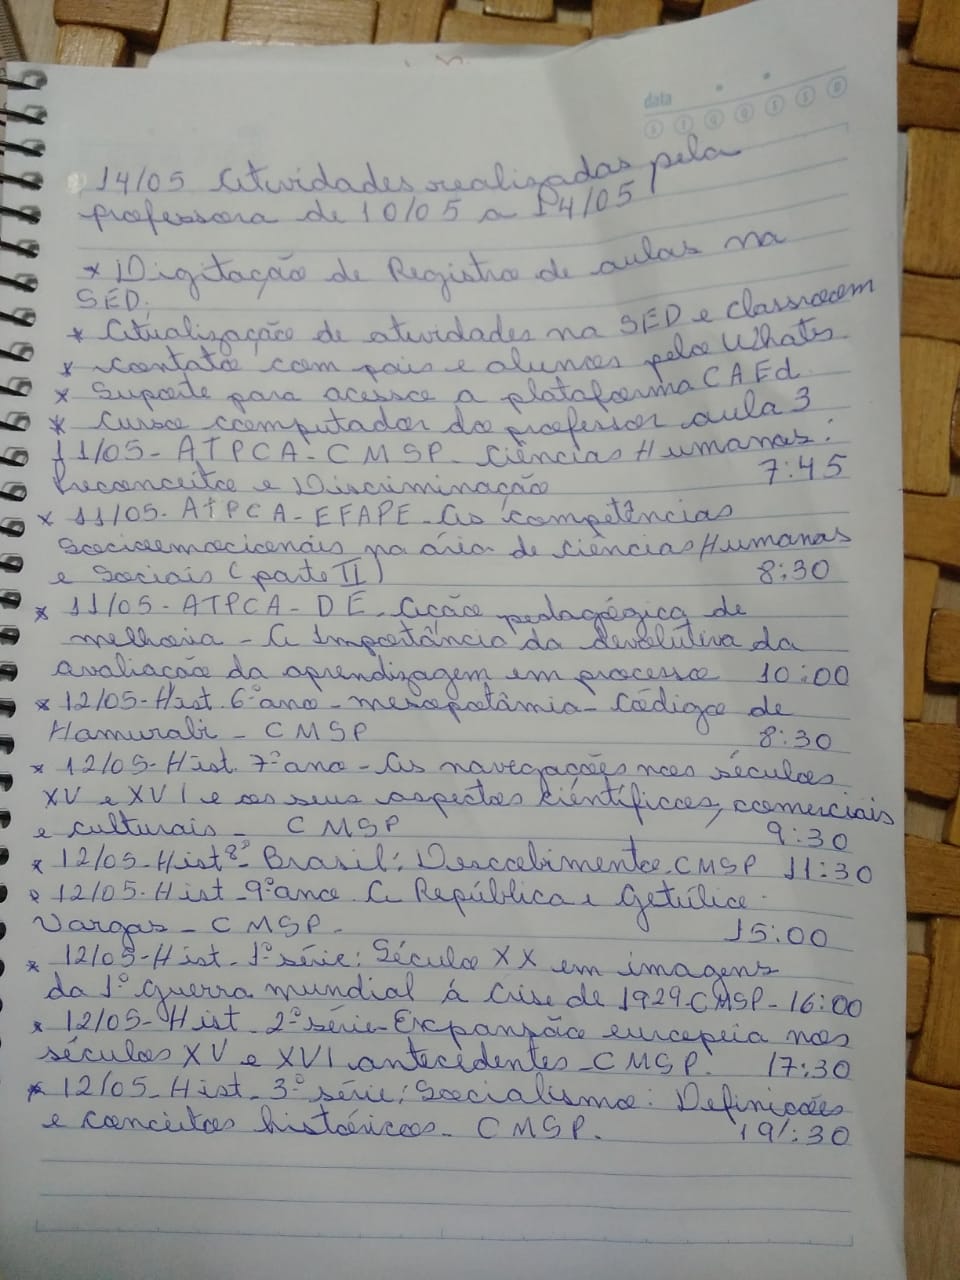 data
S T Q Q S S D
14/05 Atividades realizadas pela
professora de 10/05 a 14/05
* Digitação de Registro de aulas na
SED.
* Atualização de atividades na SED e Classroom
* Contato com pais e alunos pelo Whats
* Suporte para acesso a plataforma CAEd.
* Curso computador do professor aula 3
11/05- ATPCA-CMSP. Ciências Humanas:
Preconceito e Discriminação 7:45
* 11/05. ATPCA-EFAPE-As competências
socioemocionais na ária de ciências Humanas
e Sociais (parte II) 8:30
* 11/05-ATPCA-DE. Ação pedagógica de
melhoria-A Importância da devolutiva da
avaliação da aprendizagem em processo 10:00
* 12/05-Hist. 6º ano-mesopotâmia-Código de
Hamurabi-CMSP 8:30
* 12/05-Hist. 7º ano-As navegações nos séculos
XV e XVI e os seus aspectos científicos, comerciais
e culturais- CMSP 9:30
* 12/05-Hist 8º-Brasil: Descobrimento. CMSP 11:30
* 12/05. Hist-9º ano. A República e Getúlio
Vargas-CMSP. 15:00
* 12/05-Hist-1º série: Século XX em imagens
da 1º Guerra mundial á Crise de 1929-CMSP-16:00
* 12/05-Hist-2º série-Expansão europeia nos
séculos XV e XVI antecedentes-CMSP. 17:30
* 12/05-Hist-3º série: Socialismo: Definições
e conceitos históricos-CMSP. 19:30